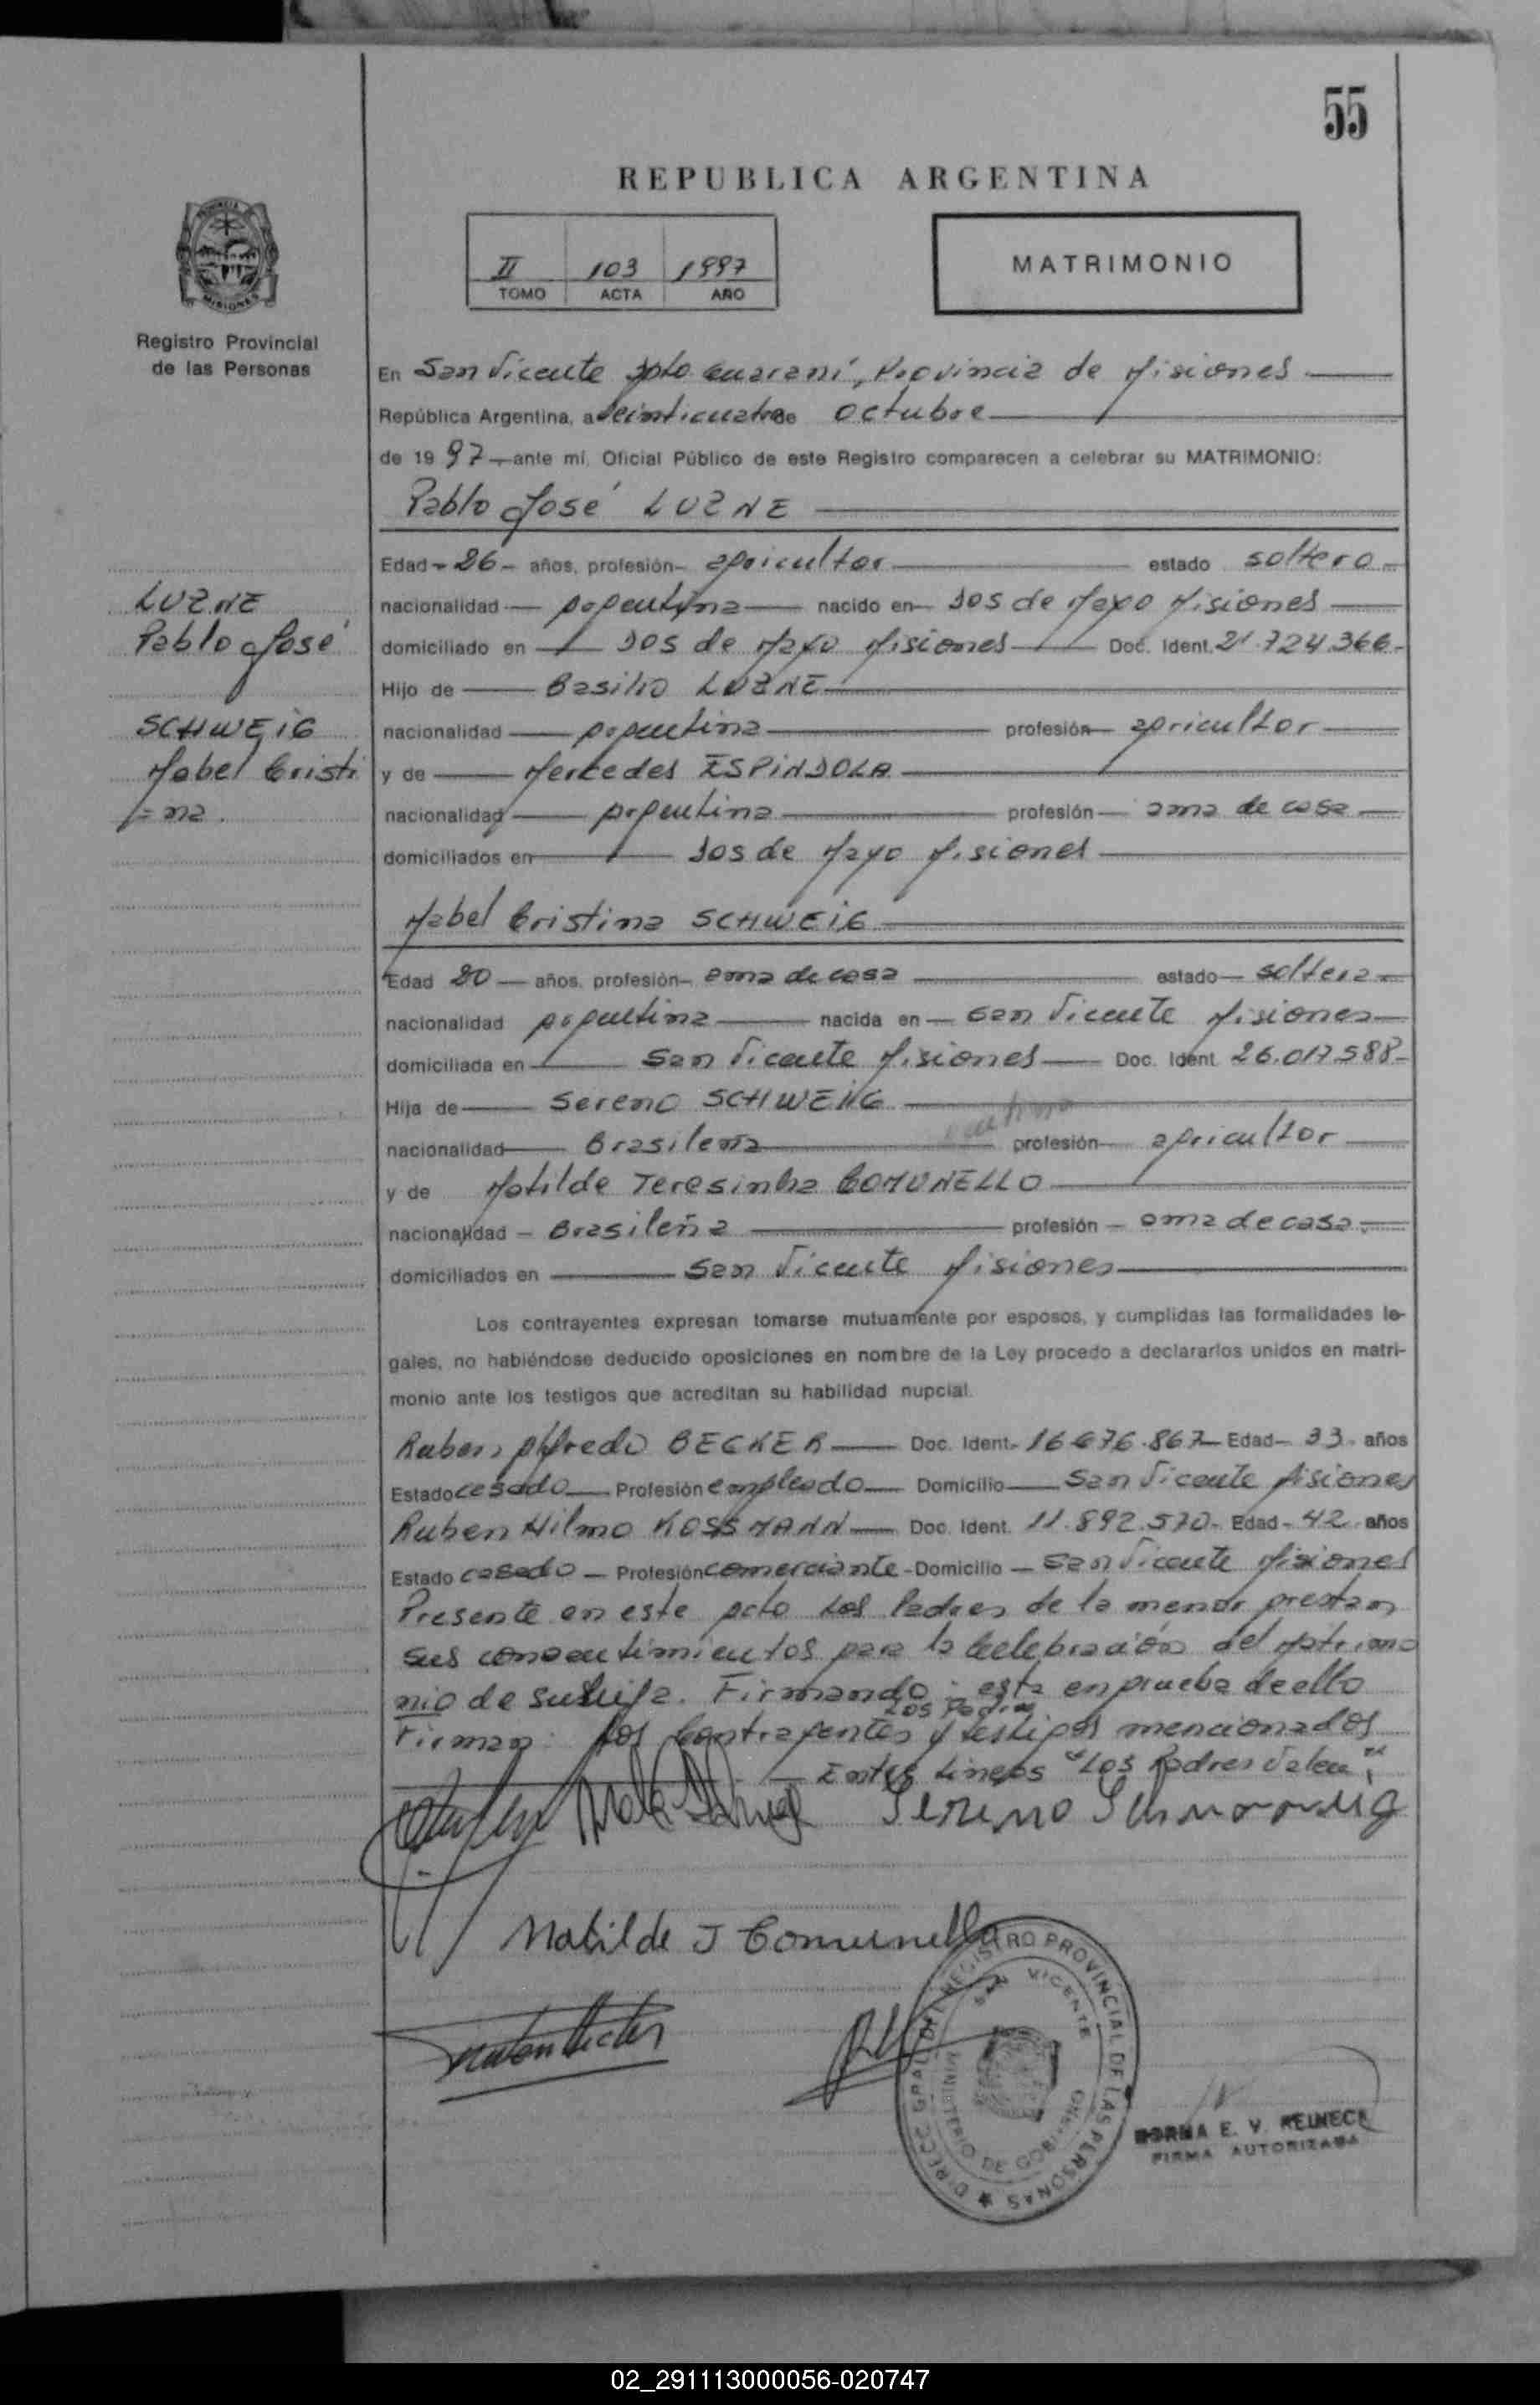 55
REPUBLICA ARGENTINA
II 103 1997
TOMO ACTA AÑO
MATRIMONIO
PROVINCIA
MISIONES
Registro Provincial
de las Personas
En San Vicente Dpto Guaraní, Provincia de Misiones
República Argentina, a veinticuatro de octubre
de 19 97 ante mí, Oficial Público de este Registro comparecen a celebrar su MATRIMONIO:
Pablo José LUZNE
Edad - 26 - años, profesión agricultor estado soltero
LUZNE
nacionalidad Argentina nacido en Dos de Mayo Misiones
Pablo José
domiciliado en Dos de Mayo Misiones Doc. Ident. 21.724.366
Hijo de Basilio LUZNE
SCHWEIG
nacionalidad Argentina profesión agricultor
Mabel Cristi
y de Mercedes ESPINDOLA
= na.
nacionalidad Argentina profesión ama de casa
domiciliados en Dos de Mayo Misiones
Mabel Cristina SCHWEIG
Edad 20 años, profesión ama de casa estado soltera
nacionalidad Argentina nacida en San Vicente Misiones
domiciliada en San Vicente Misiones Doc. Ident. 26.017.588
Hija de Sereno SCHWEIG
nacionalidad Brasileña profesión agricultor
y de Matilde Teresinha COMUNELLO
nacionalidad Brasileña profesión ama de casa
domiciliados en San Vicente Misiones
Los contrayentes expresan tomarse mutuamente por esposos, y cumplidas las formalidades le-
gales, no habiéndose deducido oposiciones en nombre de la Ley procedo a declararlos unidos en matri-
monio ante los testigos que acreditan su habilidad nupcial.
Ruben Alfredo BECKER Doc. Ident. 16.676.867 Edad 33 años
Estado casado Profesión empleado Domicilio San Vicente Misiones
Ruben Hilmo KOSSMANN Doc. Ident. 11.892.570 Edad 42 años
Estado casado Profesión comerciante Domicilio San Vicente Misiones
Presente en este acto Los Padres de la menor prestan
sus consentimientos para la Celebración del Matrimo
nio de su hija. Firmando esta en prueba de ello
Los Padres
Firman: Los Contrayentes y testigos mencionados
Entre Lineas "Los Padres Valen"
Sereno
Matilde J Comunello
DIRECC. GRAL. DEL REGISTRO PROVINCIAL DE LAS PERSONAS
SAN VICENTE
MINISTERIO DE GOBIERNO
NORMA E. V. REINECK
FIRMA AUTORIZADA
02_291113000056-020747